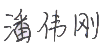 潘伟刚